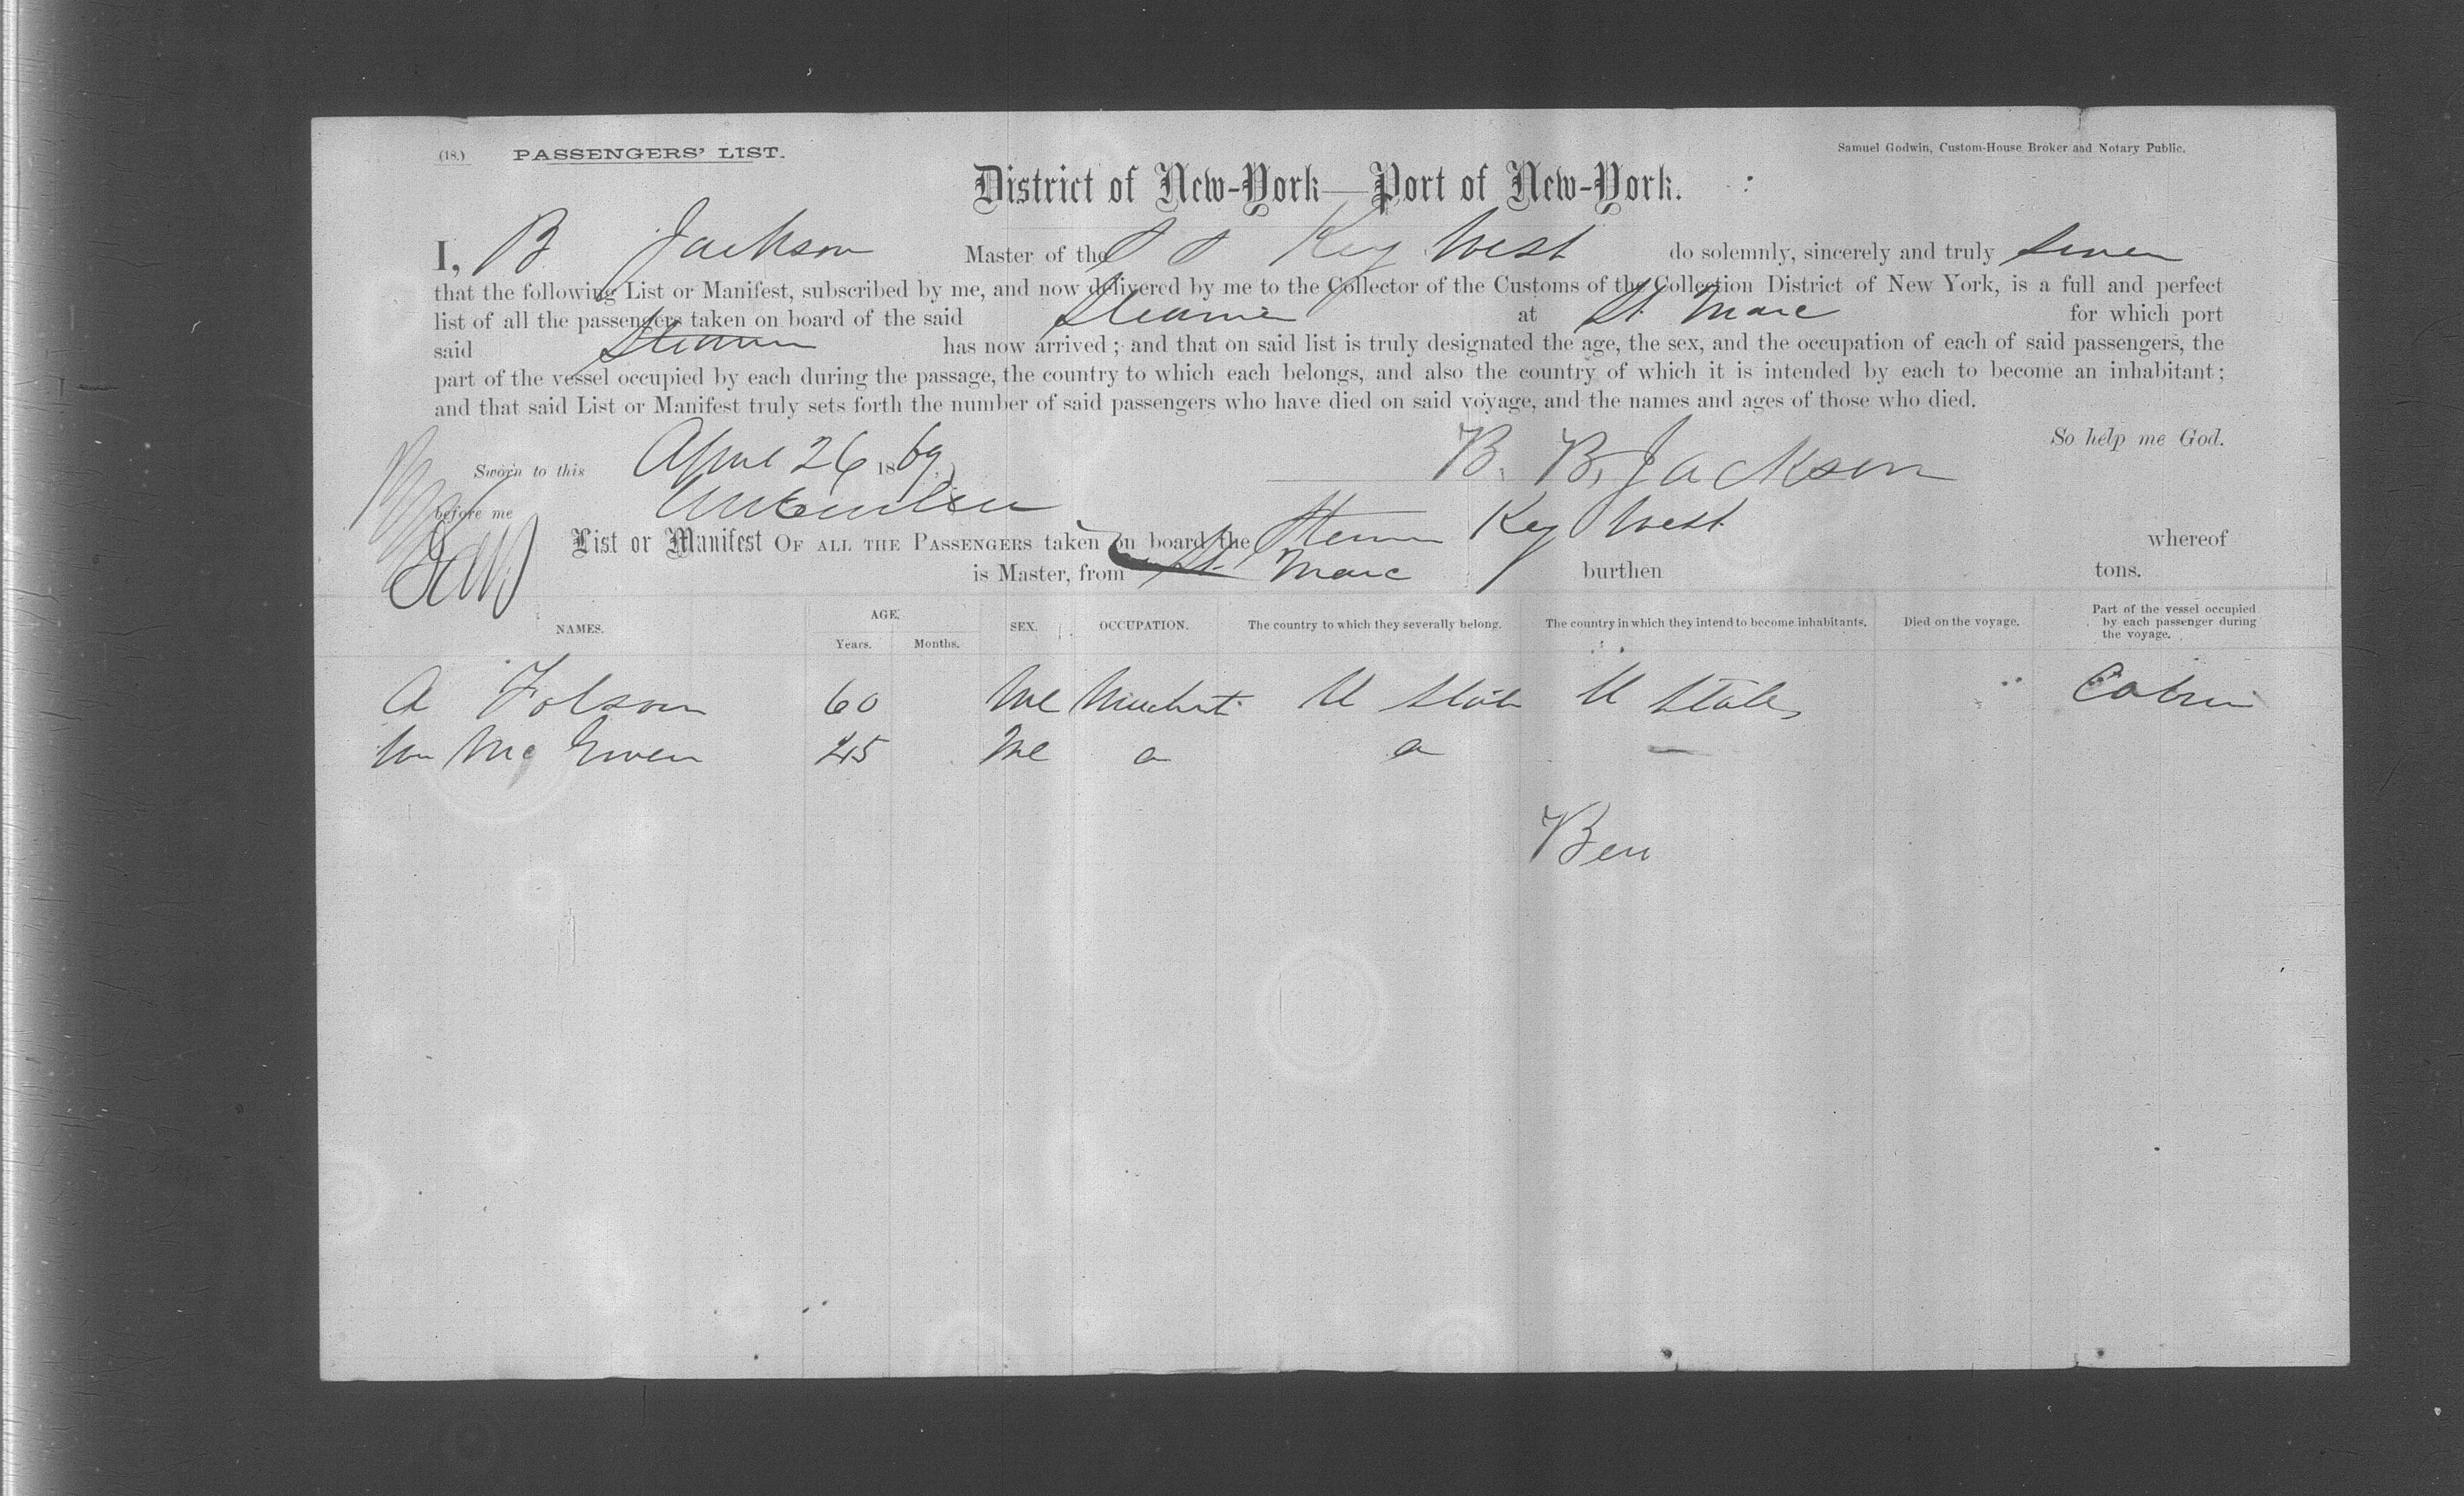 (18.) PASSENGERS' LIST.
Samuel Godwin, Custom-House Broker and Notary Public.
District of New-York—Port of New-York.
I, B Jackson Master of the S S Key West do solemnly, sincerely and truly swear
that the following List or Manifest, subscribed by me, and now delivered by me to the Collector of the Customs of the Collection District of New York, is a full and perfect
list of all the passengers taken on board of the said Steamer at St. Marc for which port
said Steamer has now arrived; and that on said list is truly designated the age, the sex, and the occupation of each of said passengers, the
part of the vessel occupied by each during the passage, the country to which each belongs, and also the country of which it is intended by each to become an inhabitant;
and that said List or Manifest truly sets forth the number of said passengers who have died on said voyage, and the names and ages of those who died.
So help me God.
Sworn to this April 26 1869 B. B. Jackson
before me
List or Manifest OF ALL THE PASSENGERS taken on board the Steamer Key West whereof
is Master, from St. Marc burthen tons.
NAMES. AGE. Years. Months. SEX. OCCUPATION. The country to which they severally belong. The country in which they intend to become inhabitants. Died on the voyage. Part of the vessel occupied by each passenger during the voyage.
A Folsom 60 Me Merchant U States U States Cabin
Wm Mc Ewen 45 Me a a —
Ben